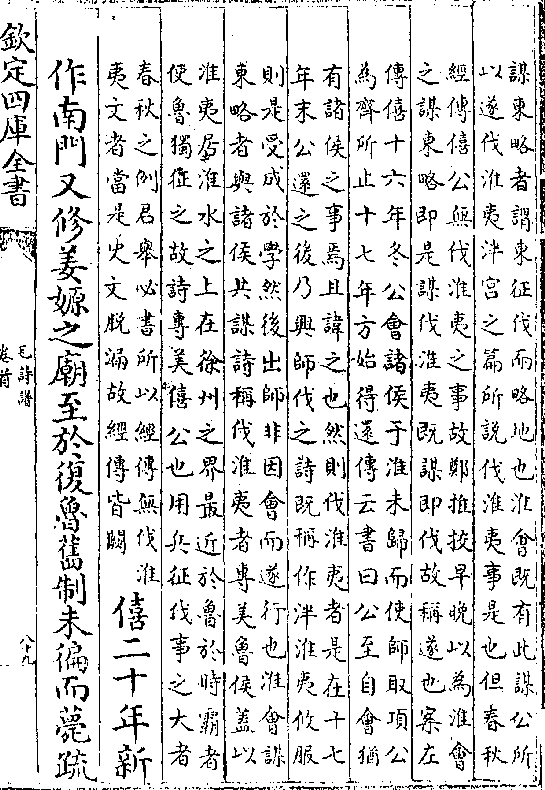 謀東略者謂東征伐而略地也淮會既有此謀公所
以遂伐淮夷泮宮之篇所說伐淮夷事是也但春秋
經傳僖公無伐淮夷之事故鄭推挍早晚以為淮會
之謀東略即是謀伐淮夷既謀即伐故稱遂也案左
傳僖十六年冬公會諸侯于淮未歸而使師取項公
為齊所止十七年方始得還傳云書曰公至自會猶
有諸侯之事焉且諱之也然則伐淮夷者是在十七
年末公還之後乃興師伐之詩既稱作泮淮夷攸服
則是受成於學然後出師非因會而遂行也淮會謀
東略者與諸侯共謀詩稱伐淮夷者專美魯侯蓋以
淮夷居淮水之上在徐州之界最近於魯於時霸者
使魯獨征之故詩專美僖公也用兵征伐事之大者
春秋之例君舉必書所以經傳無伐淮
夷文者當是史文脫漏故經傳皆闕
僖二十年新
作南門又修姜嫄之廟至於復魯舊制未徧而薨䟽
欽定四庫全書
毛詩譜
卷首
八十九